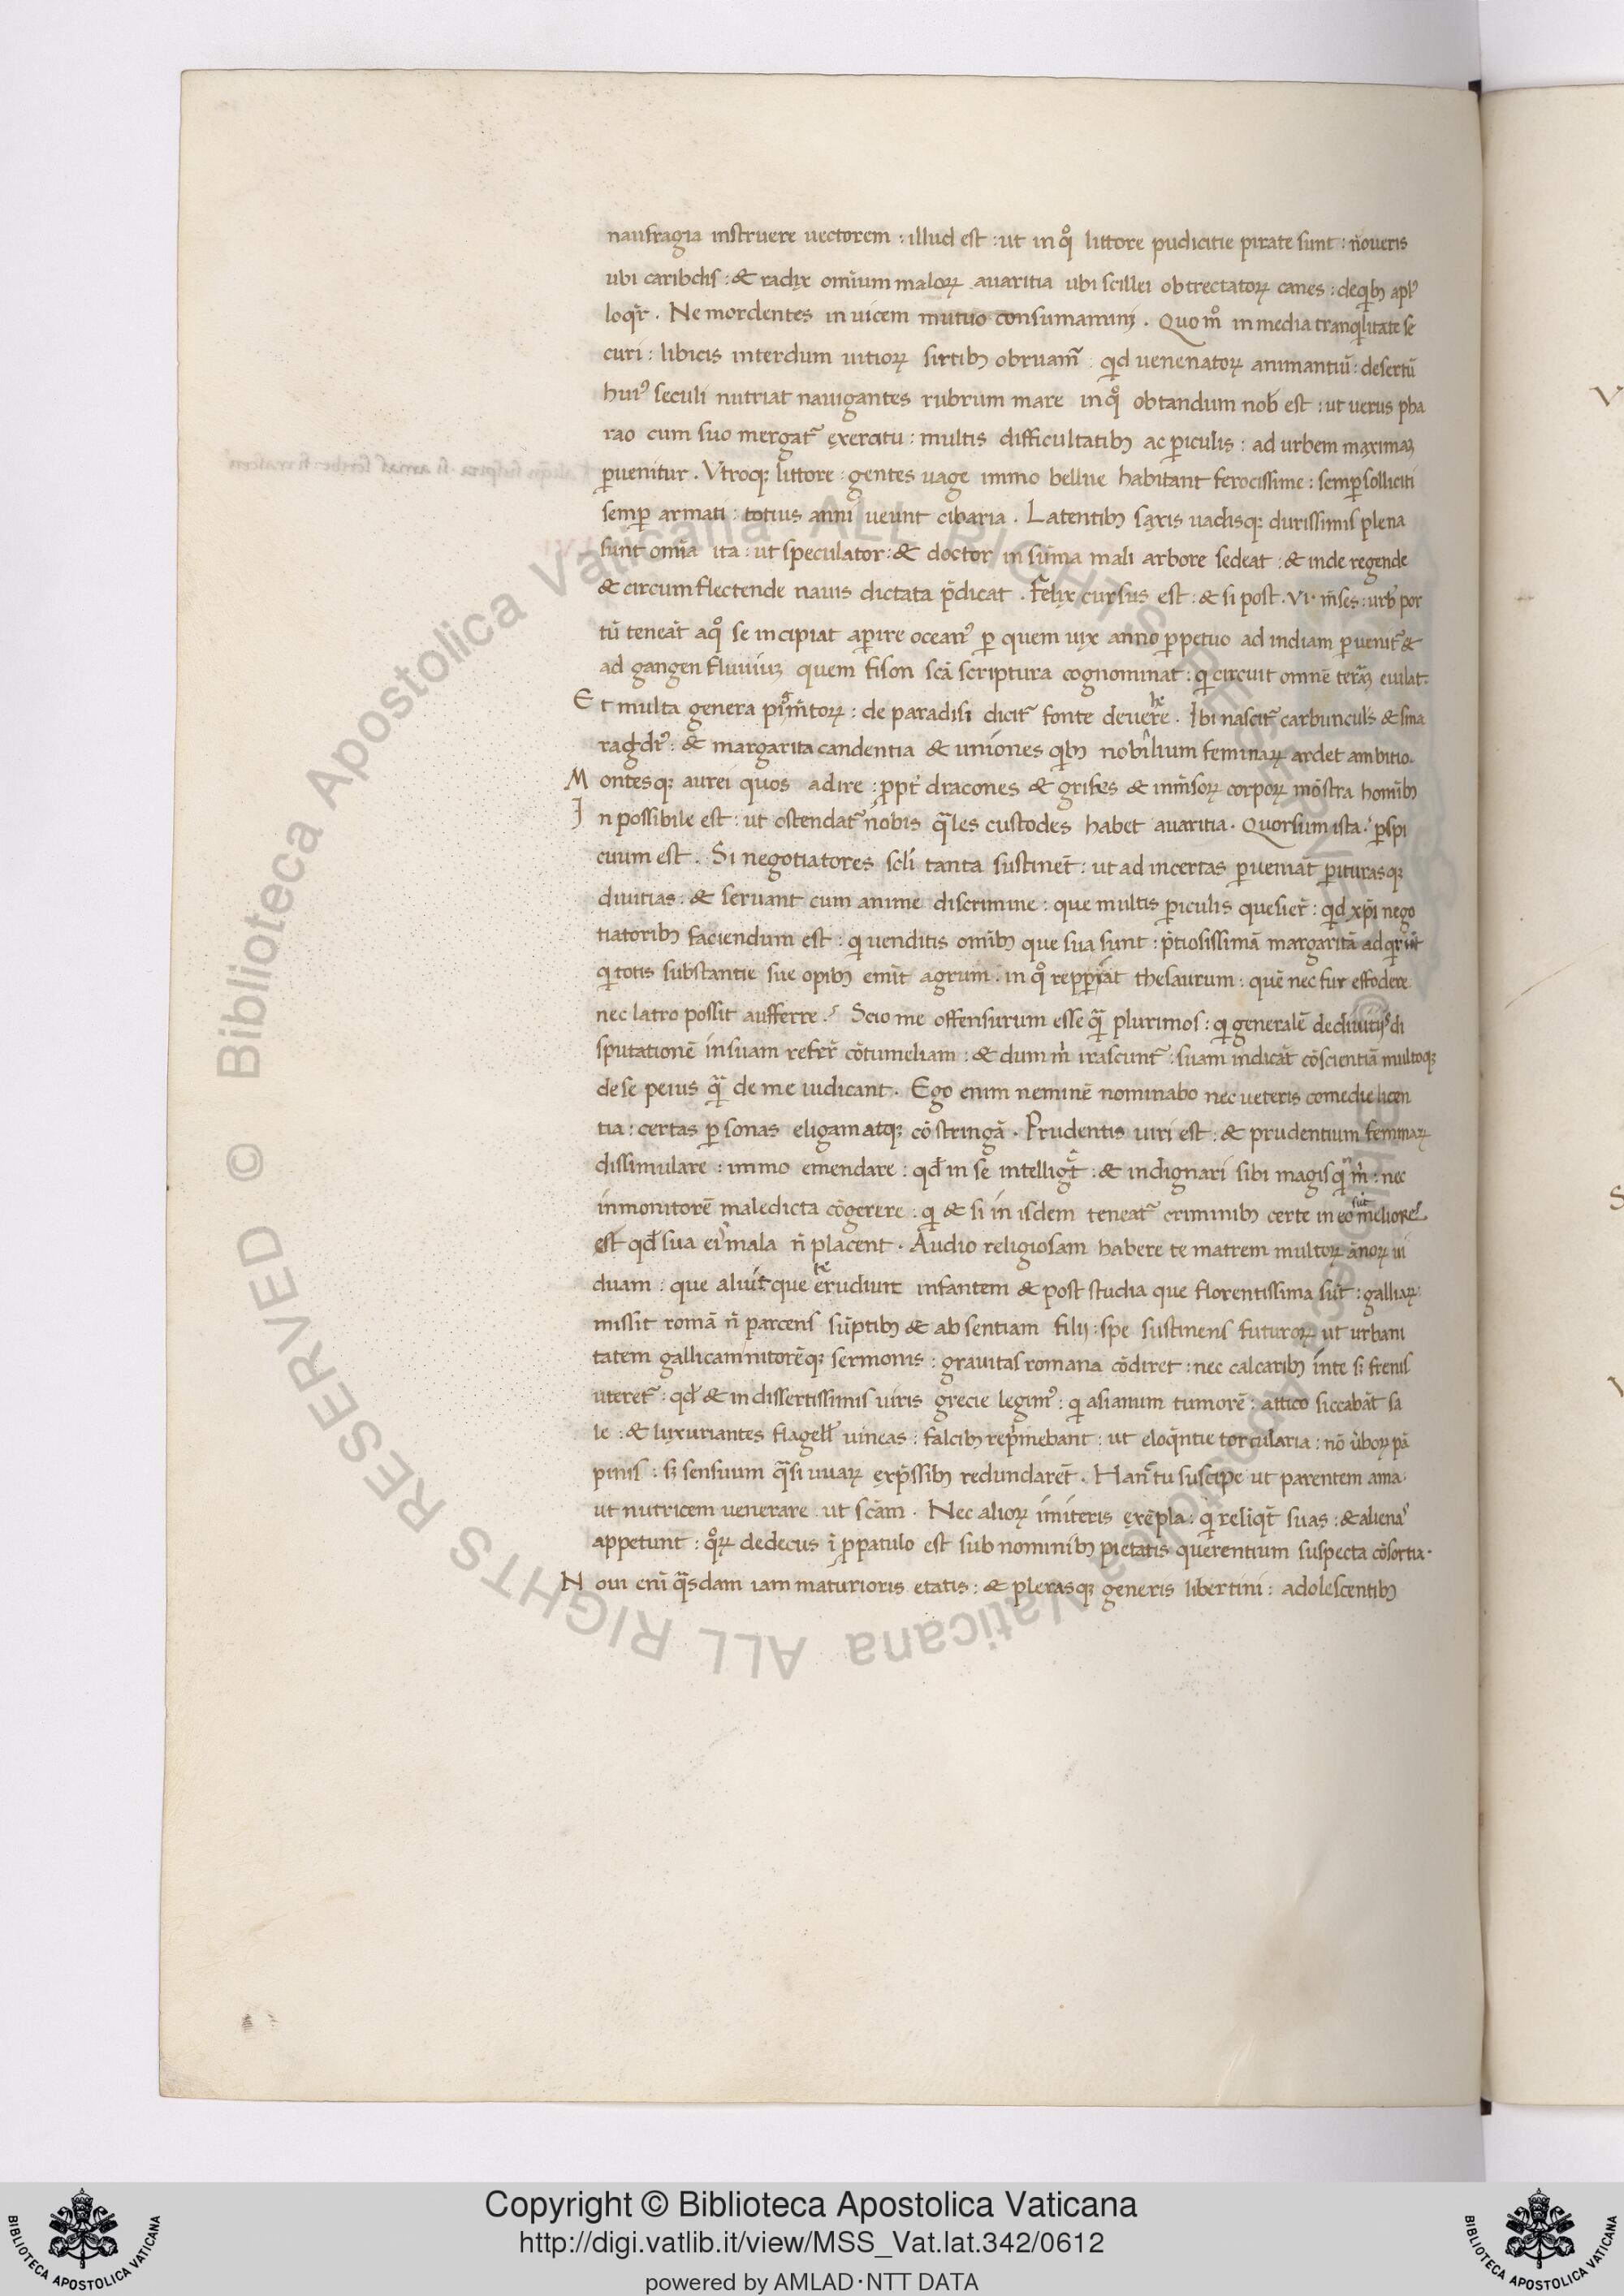 naufragia instruere uectorem : illud est : ut in qͦ littore pudicitie pirate sunt : ñoueris
ubi caribdis : & radix omĩum maloꝝ auaritia ubi scillei obtrectatoꝝ canes : deqͥbꝫ aplꝰ
loqͥr . Ne mordentes in uicem mutuo consumaminj . Quo mͦ in media tranqͥlitate se
curi : libicis interdum uitioꝝ sirtibꝫ obruam̃ . qͥd uenenatoꝝ animantiũ : desertũ
huiꝰ seculi nutriat nauigantes rubrum mare in qͦ obtandum nob̃ est : ut uerus pha
rao cum suo mergat̃ exercitu : multis difficultatibꝫ ac ꝑiculis : ad urbem maximaꝫ
ꝑuenitur . Vtroqꝫ littore : gentes uage immo bellue habitant ferocissime : semꝑ solliciti
semꝑ armati : totius anni ueunt cibaria . Latentibꝫ saxis uadisqꝫ durissimis plena
sunt omĩa ita : ut speculator : & doctor in sũma mali arbore sedeat : & inde regende
& circum flectende nauis dictata p̃dicat . Felix cursus est : & si post . vi . m̃ses : urbˀ por
tũ teneãt aqͦ se incipiat aꝑire oceanꝰ ꝑ quem uix anno ꝑpetuo ad indiam ꝑuenit̃ &
ad gangen fluuiuꝫ quem fison scã scriptura cognominat : qͥ circuit omnẽ terãꝫ euilat .
Et multa genera pigm̃toꝝ : de paradisi dicit̃ fonte deuehere . Ibi nascit̃ carbunculˀs & sma
ragdiˀ : & margarita candentia & uniones qͥbꝫ nobilium feminaꝝ ardet ambitio .
Montesqꝫ aurei quos adire : ꝓpt̃ dracones & grifes & inm̃soꝝ corpoꝝ mõstra homĩbꝫ
Jn possibile est : ut ostendat̃ nobis qᷓles custodes habet auaritia . Quorsum ista . ꝑspi
cuum est . Si negotiatores scl̃i tanta sustinet̃ : ut ad incertas ꝑueniãt ꝑiturasqꝫ
diuitias : & seruant cum anime discrimine : que multis ꝑiculis quesier̃ : qͥd xp̃i nego
tiatoribꝫ faciendum est : qͥ uenditis omĩbꝫ que sua sunt : p̃tiosissimã margaritã adqͥrũt
qͥ totis substantie sue opibꝫ emũt agrum . in qͦ repꝑiãt thesaurum : quẽ nec fur effodere
nec latro possit aufferre . Scio me offensurum esse qᷓ plurimos : qͥ generalẽ de diuitijs di
sputationẽ in suam refer̃r cõtumeliam : & dum m̃ irascunt̃ : suam indicãt cõscientiã multoqꝫ
de se peius qᷓ de me iudicant . Ego enim neminẽ nominabo nec ueteris comedie licen
tia : certas ꝑsonas eligam atqꝫ cõstringã . Prudentis uiri est : & prudentium feminaꝝ
dissimulare : immo emendare : qd̃ in se intelligt̃ : & indignari sibi magis qᷓ mͥ : nec
in monitorẽ maledicta cõgerere : qͥ & si in isdem teneat̃ criminibꝫ certe in eo sũt meliores
est qd̃ sua eiˀ mala ñ placent . Audio religiosam habere te matrem multoꝝ ãnoꝝ ui
duam : que aluit que te erudiuit infantem & post studia que florentissima sũt : galliaꝝ
missit romã ñ parcens sũptibꝫ & absentiam filij : spe sustinens futuroꝝ ut urbani
tatem gallicam nitorẽqꝫ sermonis : grauitas romana cõdiret : nec calcaribꝫ in te sꝫ frenis
uteret̃ : qd̃ & in dissertissimis uiris grecie legimꝰ : qͥ asianum tumorẽ : attico siccabãt sa
le : & luxuriantes flagell̃ uineas : falcibꝫ rep̃mebant : ut eloqñtie torcularia : nõ ũboꝝ pã
pinis : sꝫ sensuum qᷓsi uuaꝝ exp̃ssibꝫ redundaret̃ . Hanc tu suscipe ut parentem ama
ut nutricem uenerare ut scãm . Nec alioꝝ imiteris exẽpla : qͥ reliqt̃ suas : & alienas
appetunt : qͦꝝ dedecus ĩ ꝓpatulo est sub nominibꝫ pietatis querentium suspecta cõsortia .
Noui eni qᷓsdam iam maturioris etatis : & plerasqꝫ generis libertini : adolescentibꝫ
© Biblioteca Apostolica Vaticana ALL RIGHTS RESERVED
© Biblioteca Apostolica Vaticana ALL RIGHTS RESERVED
Copyright © Biblioteca Apostolica Vaticana
http://digi.vatlib.it/view/MSS_Vat.lat.342/0612
powered by AMLAD·NTT DATA
BIBLIOTECA APOSTOLICA VATICANA
BIBLIOTECA APOSTOLICA VATICANA